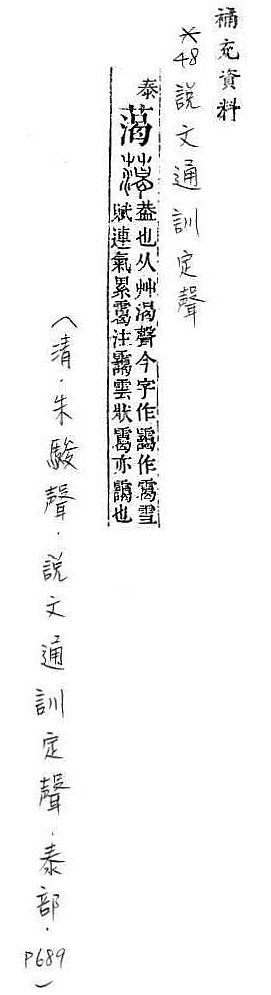 補充資料
※48 説文通訓定聲
泰
葢也从艸渴聲今字作靄作雪
賦連氣累注靄雲狀亦靄也
（清．朱駿聲．説文通訓定聲．泰部．P689）